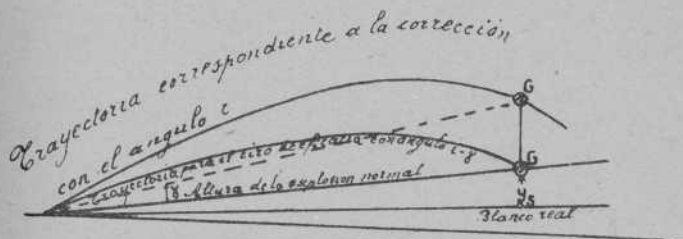 Trayectoria correspondiente a la corrección
con el angulo i
G
Trayectoria para el tiro con angulo i-γ
G
γ Altura de la explosion normal
Blanco real